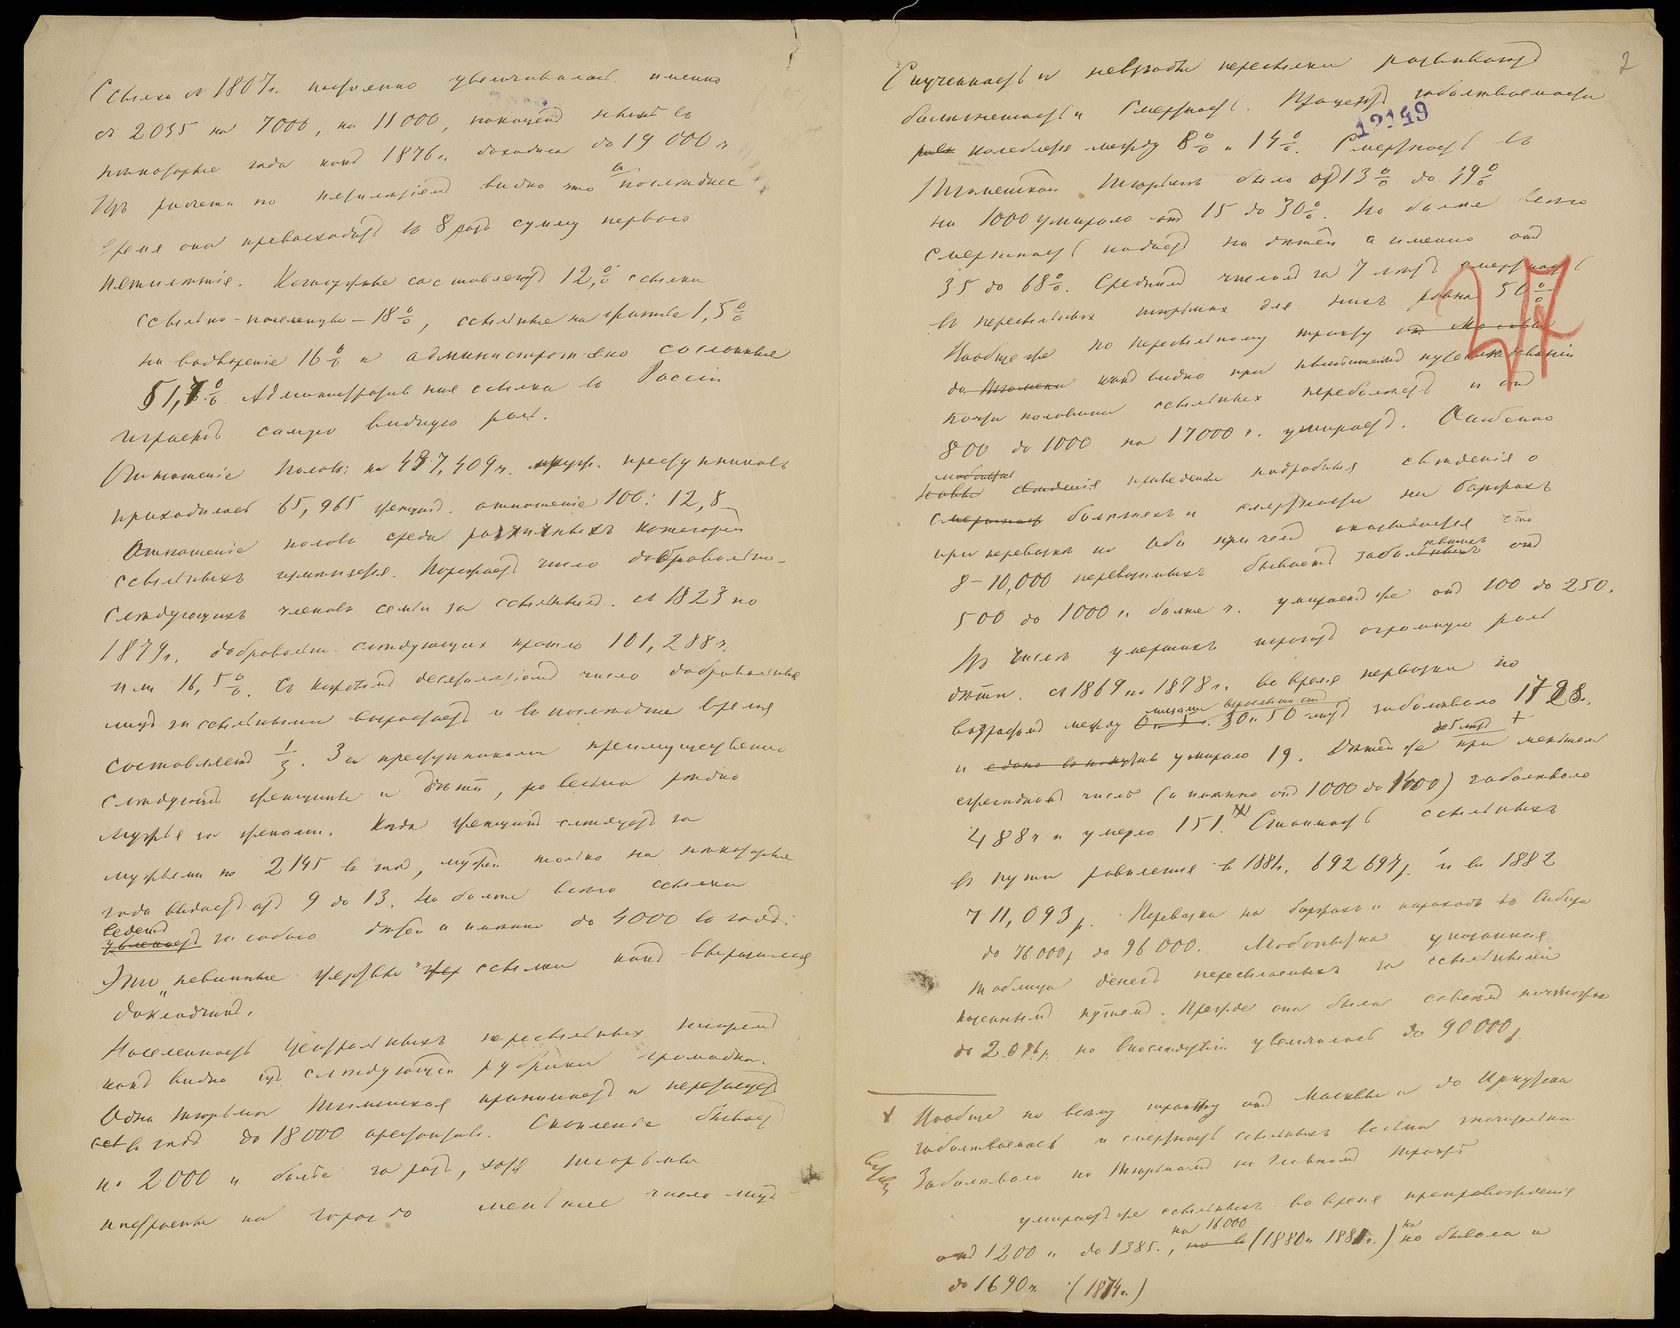 Ссылка съ 1807г. постоянно увеличивалась именно
съ 2035 на 7000, на 11000, наконецъ въ
некоторые года какъ 1876г. доходила до 19000 ч
Изъ расчета по пятилѣтіямъ видно что въ последнее
время она превосходитъ въ 8 разъ сумму перваго
пятилѣтія. Каторжные составляютъ 12,% ссылки
ссыльно-поселенцы – 18%, ссыльные на житье 1,5%
на водвореніе 16% и административно сосланные
51,7%. Административная ссылка въ Россіи
играетъ самую видную роль.
Отношеніе половъ: на 437,409 ч. мужч. преступниковъ
приходилось 65,965 женщ. отношеніе 100: 12,8
Отношеніе половъ среди различныхъ категорій
ссыльныхъ измѣняется. Поражаетъ число добровольно-
слѣдующихъ членовъ семьи за ссыльным. съ 1823 по
1879г. добровольно слѣдующихъ прошло 101,288 ч.
или 16,5%. Съ каждымъ десятилѣтіемъ число добровольныхъ
лицъ за ссыльными возрастаетъ и въ последнее время
составляетъ 1/3. За преступниками преимущественно
слѣдуютъ женщины и дѣти, но весьма рѣдко
мужья за женами. Когда женщинъ слѣдуетъ за
мужьями по 2145 въ годъ, мужей только на некоторые
года выпадаетъ отъ 9 до 13. Но болѣе всего ссылка
ведетъ
увлекаетъ за собою дѣтей а именно до 4000 въ годъ.
Это „невинныя жертвы" ссылки какъ выразился
докладчикъ.
Населенность центральныхъ пересыльныхъ тюремъ
какъ видно изъ слѣдующей рубрики громадна.
Одна тюрьма Тюменская принимаетъ и пересылаетъ
въ годъ до 18000 арестантовъ. Скопленіе бываетъ
по 2000 и болѣе за разъ, хотя тюрьмы
построены на гораздо меньшее число лицъ
2
Скученность и невзгоды пересылки развиваютъ
болѣзненность и смертность. Процентъ заболѣваемости
12149
колеблется между 8% и 14%. Смертность въ
Тюменской тюрьмѣ была отъ 13% до 19%
на 1000 умирало отъ 15 до 30%. Но болѣе всего
смертность падаетъ на дѣтей а именно отъ
35 до 68%. Среднимъ числомъ за 7 лѣтъ смертность
въ пересыльныхъ тюрьмахъ для нихъ равна 50%
27
Вообще же по пересыльному тракту от Москвы
до Тюмени какъ видно при
почти половина ссыльныхъ переболѣетъ и отъ
800 до 1000 на 17000 ч. умираетъ. Особенно
любопытны
свѣденія приведены подробныя свѣдѣнія о
смертность болѣзнен и смертности на баржахъ
при перевозкѣ по Оби причемъ оказывается что
8–10,000 перевозимыхъ бываетъ заболѣвшихъ отъ
500 до 1000 и болѣе ч. умираетъ же отъ 100 до 250.
Въ числѣ умершихъ играютъ огромную роль
дѣти. съ 1869 по 1878г. во время перевозки по
возрастамъ между 30 и 50 лѣтъ заболѣвало 1728.
и умирало 19. Дѣтей же до 5 лѣтъ при меньшемъ
ежегодномъ числѣ (а именно отъ 1000 до 1400) заболѣвало
488 ч и умерло 151. Стоимость ссыльныхъ
въ пути равнялась въ 1881г. 692697 р. и въ 1882
711,093 р. Перевозка на баржахъ и пароходъ въ Сибири
до 76000 р до 96000. Любопытна указанная
таблица денегъ пересылаемыхъ за ссыльными
казеннымъ путемъ. Прежде она была совсемъ ничтожна
до 2.076 р. но впоследствіи увеличилась до 90000 р.
х Вообще по всему тракту отъ Москвы и до Иркутска
заболѣваемость и смертность ссыльныхъ весьма значительна
Заболѣвало по тюрьмамъ на главномъ трактѣ
умираетъ же ссыльныхъ во время препровожденія
на 16000
отъ 1200 и до 1385., (1880 и 1881 г.) но бывало и
до 1690 ч. (1874 г.)